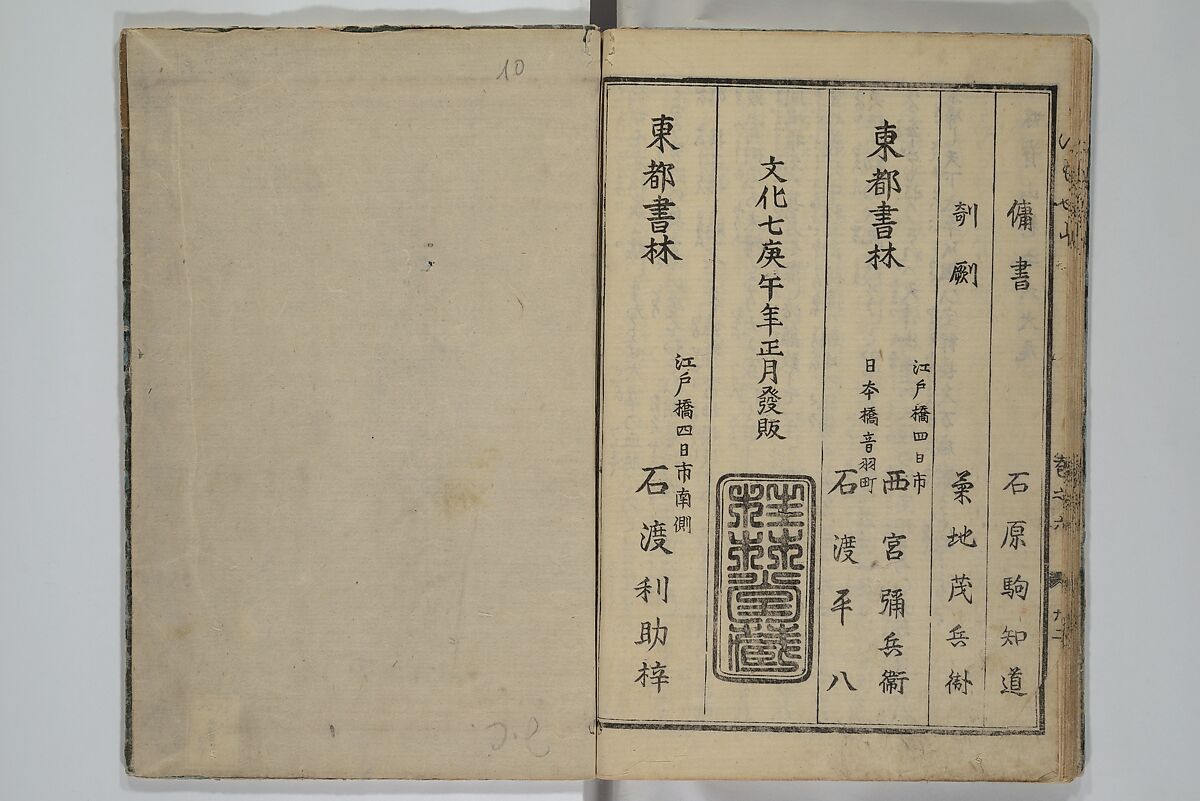 傭書 石原駒知道
剞劂 菊地茂兵衛
東都書林
江戸橋四日市 西宮彌兵衛
日本橋音羽町 石渡平八
文化七庚午年正月發販
東都書林
江戸橋四日市南側
石渡利助梓
10